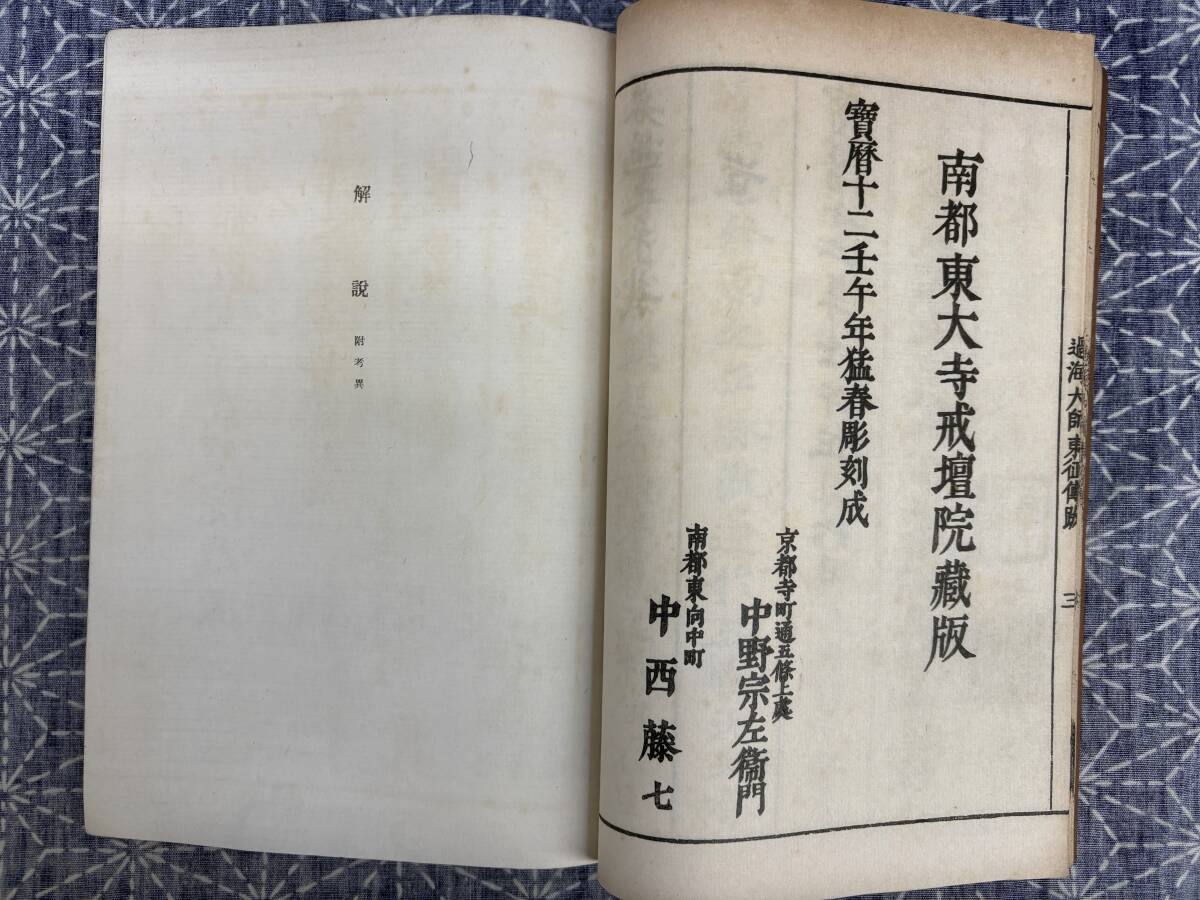 過海大師東征傳跋
三
南都東大寺戒壇院藏版
寶暦十二壬午年猛春彫刻成
京都寺町通五條上處
中野宗左衞門
南都東向中町
中西藤七
解說
附考異